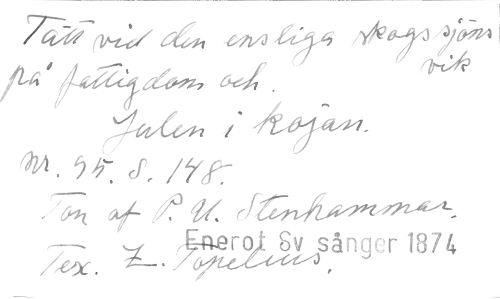 Tätt vid den ensliga skogssjöns
vik
på fattigdom och.
Julen i kojan.
Nr. 95. S. 148.
Ton af P. U. Stenhammar.
Enerot Sv sånger 1874
Tex. Z. Topelius.